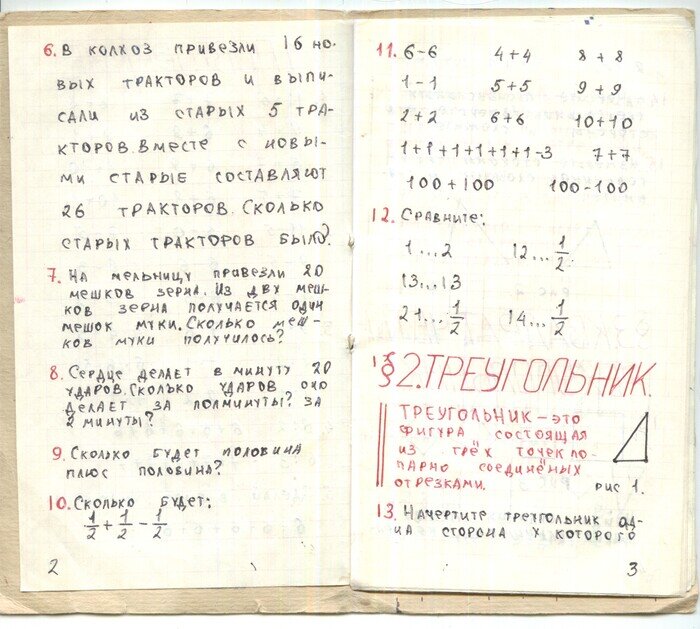 6. В КОЛХОЗ ПРИВЕЗЛИ 16 НО-
ВЫХ ТРАКТОРОВ И ВЫПИ-
САЛИ ИЗ СТАРЫХ 5 ТРА-
КТОРОВ. ВМЕСТЕ С НОВЫ-
МИ СТАРЫЕ СОСТАВЛЯЮТ
26 ТРАКТОРОВ. СКОЛЬКО
СТАРЫХ ТРАКТОРОВ БЫЛО?
7. НА МЕЛЬНИЦУ ПРИВЕЗЛИ 20
МЕШКОВ ЗЕРНА. ИЗ ДВУХ МЕШ-
КОВ ЗЕРНА ПОЛУЧАЕТСЯ ОДИН
МЕШОК МУКИ. СКОЛЬКО МЕШ-
КОВ МУКИ ПОЛУЧИЛОСЬ?
8. СЕРДЦЕ ДЕЛАЕТ В МИНУТУ 20
УДАРОВ. СКОЛЬКО УДАРОВ ОНО
ДЕЛАЕТ ЗА ПОЛМИНУТЫ? ЗА
2 МИНУТЫ?
9. СКОЛЬКО БУДЕТ ПОЛОВИНА
ПЛЮС ПОЛОВИНА?
10. СКОЛЬКО БУДЕТ:
1/2 + 1/2 - 1/2
2
11. 6-6 4+4 8+8
1-1 5+5 9+9
2+2 6+6 10+10
1+1+1+1+1+1-3 7+7
100+100 100-100
12. СРАВНИТЕ:
1...2 12...1/2
13...13
21...1/2 14...1/2
§2. ТРЕУГОЛЬНИК.
ТРЕУГОЛЬНИК - ЭТО
ФИГУРА СОСТОЯЩАЯ
ИЗ ТРЁХ ТОЧЕК ПО-
ПАРНО СОЕДИНЁНЫХ
ОТРЕЗКАМИ.
РИС 1.
13. НАЧЕРТИТЕ ТРЕУГОЛЬНИК ОД-
НА СТОРОНА У КОТОРОГО
3